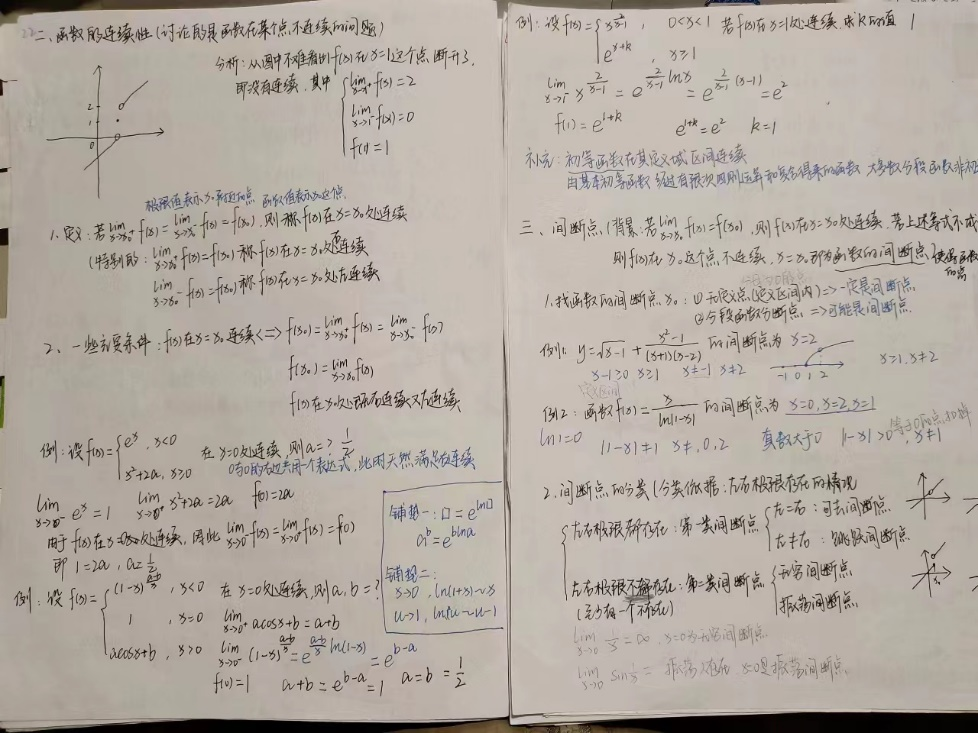 二、函数的连续性(讨论的是函数在某个点不连续的问题)
分析:从图中不难看出f(x)在x=1这个点断开了,
即没有连续.其中 { lim x→1⁺ f(x)=2
lim x→1⁻ f(x)=0
f(1)=1
2
1
0
极限值表示x₀附近的点 函数值表示x₀这个点.
1.定义:若 lim x→x₀⁺ f(x)= lim x→x₀⁻ f(x)=f(x₀),则称f(x)在x=x₀处连续
(特别的: lim x→x₀⁺ f(x)=f(x₀)称f(x)在x=x₀处右连续
lim x→x₀⁻ f(x)=f(x₀)称f(x)在x=x₀处左连续
2、一些重要条件:f(x)在x=x₀连续<=>f(x₀)= lim x→x₀⁺ f(x)= lim x→x₀⁻ f(x)
f(x₀)= lim x→x₀ f(x)
f(x)在x₀处既右连续又左连续
例:设f(x)= { eˣ , x<0
x²+2a, x≥0
在x=0处连续,则a=? 1/2
0与0的右边共用一个表达式,此时天然满足右连续
lim x→0⁻ eˣ=1 lim x→0⁺ x²+2a=2a f(0)=2a
由于f(x)在x=0处连续,因此 lim x→0⁻ f(x)= lim x→0⁺ f(x)=f(0)
即 1=2a , a=1/2
铺垫一:□=e^(ln□)
aᵇ=e^(b ln a)
铺垫二:
x→0 , ln(1+x)~x
u→1, ln u~u-1
例:设f(x)= { (1-x)^((a-b)/x) , x<0
1 , x=0
acosx+b , x>0
在x=0处连续,则a,b=?
lim x→0⁺ acosx+b=a+b
lim x→0⁻ (1-x)^((a-b)/x)=e^((a-b)/x ln(1-x))=e^(b-a)
f(0)=1 a+b=e^(b-a)=1 a=b=1/2
例:设f(x)= { x^(2/(x-1)) , 0<x<1
e^(x+k) , x≥1
若f(x)在x=1处连续.求k的值 1
lim x→1⁻ x^(2/(x-1))=e^(2/(x-1) lnx)=e^(2/(x-1) (x-1))=e²
f(1)=e^(1+k) e^(1+k)=e² k=1
补充:初等函数在其定义域区间连续
由基本初等函数经过有限次四则运算和复合得来的函数 大多数分段函数非初
三、间断点(背景:若 lim x→x₀ f(x)=f(x₀),则f(x)在x=x₀处连续.若上述等式不成
则f(x)在x₀这个点不连续,x=x₀即为函数的间断点
1.找函数的间断点x₀:①无定义点(定义区间内)=>一定是间断点
②分段函数分断点=>可能是间断点
例1: y=√(x-1)+(x²-1)/((x+1)(x-2))的间断点为 x=2
x-1≥0 x≥1 x≠-1 x≠2
-1 0 1 2
x≥1.x≠2
例2:函数f(x)=x/ln|1-x|的间断点为 x=0,x=2,x=1
ln1=0 |1-x|≠1 x≠0,2 真数大于0 |1-x|>0,x≠1
2.间断点的分类(分类依据:左右极限存在的情况
{ 左右极限都存在:第一类间断点 { 左=右:可去间断点
左≠右:跳跃间断点
左右极限不都存在:第二类间断点 { 无穷间断点
(至少有一个不存在) 振荡间断点
lim x→0 1/x=∞,x=0为无穷间断点
lim x→0 sin1/x= 振荡不存在 x=0是振荡间断点